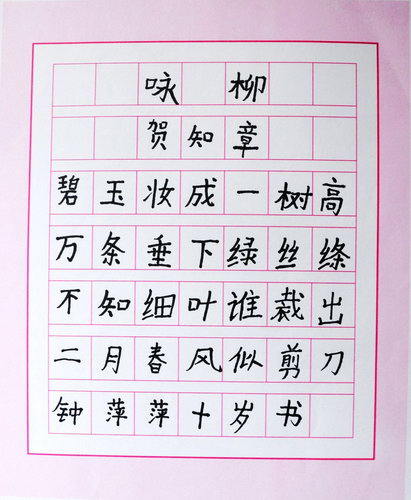 咏柳
贺知章
碧玉妆成一树高
万条垂下绿丝绦
不知细叶谁裁出
二月春风似剪刀
钟萍萍十岁书